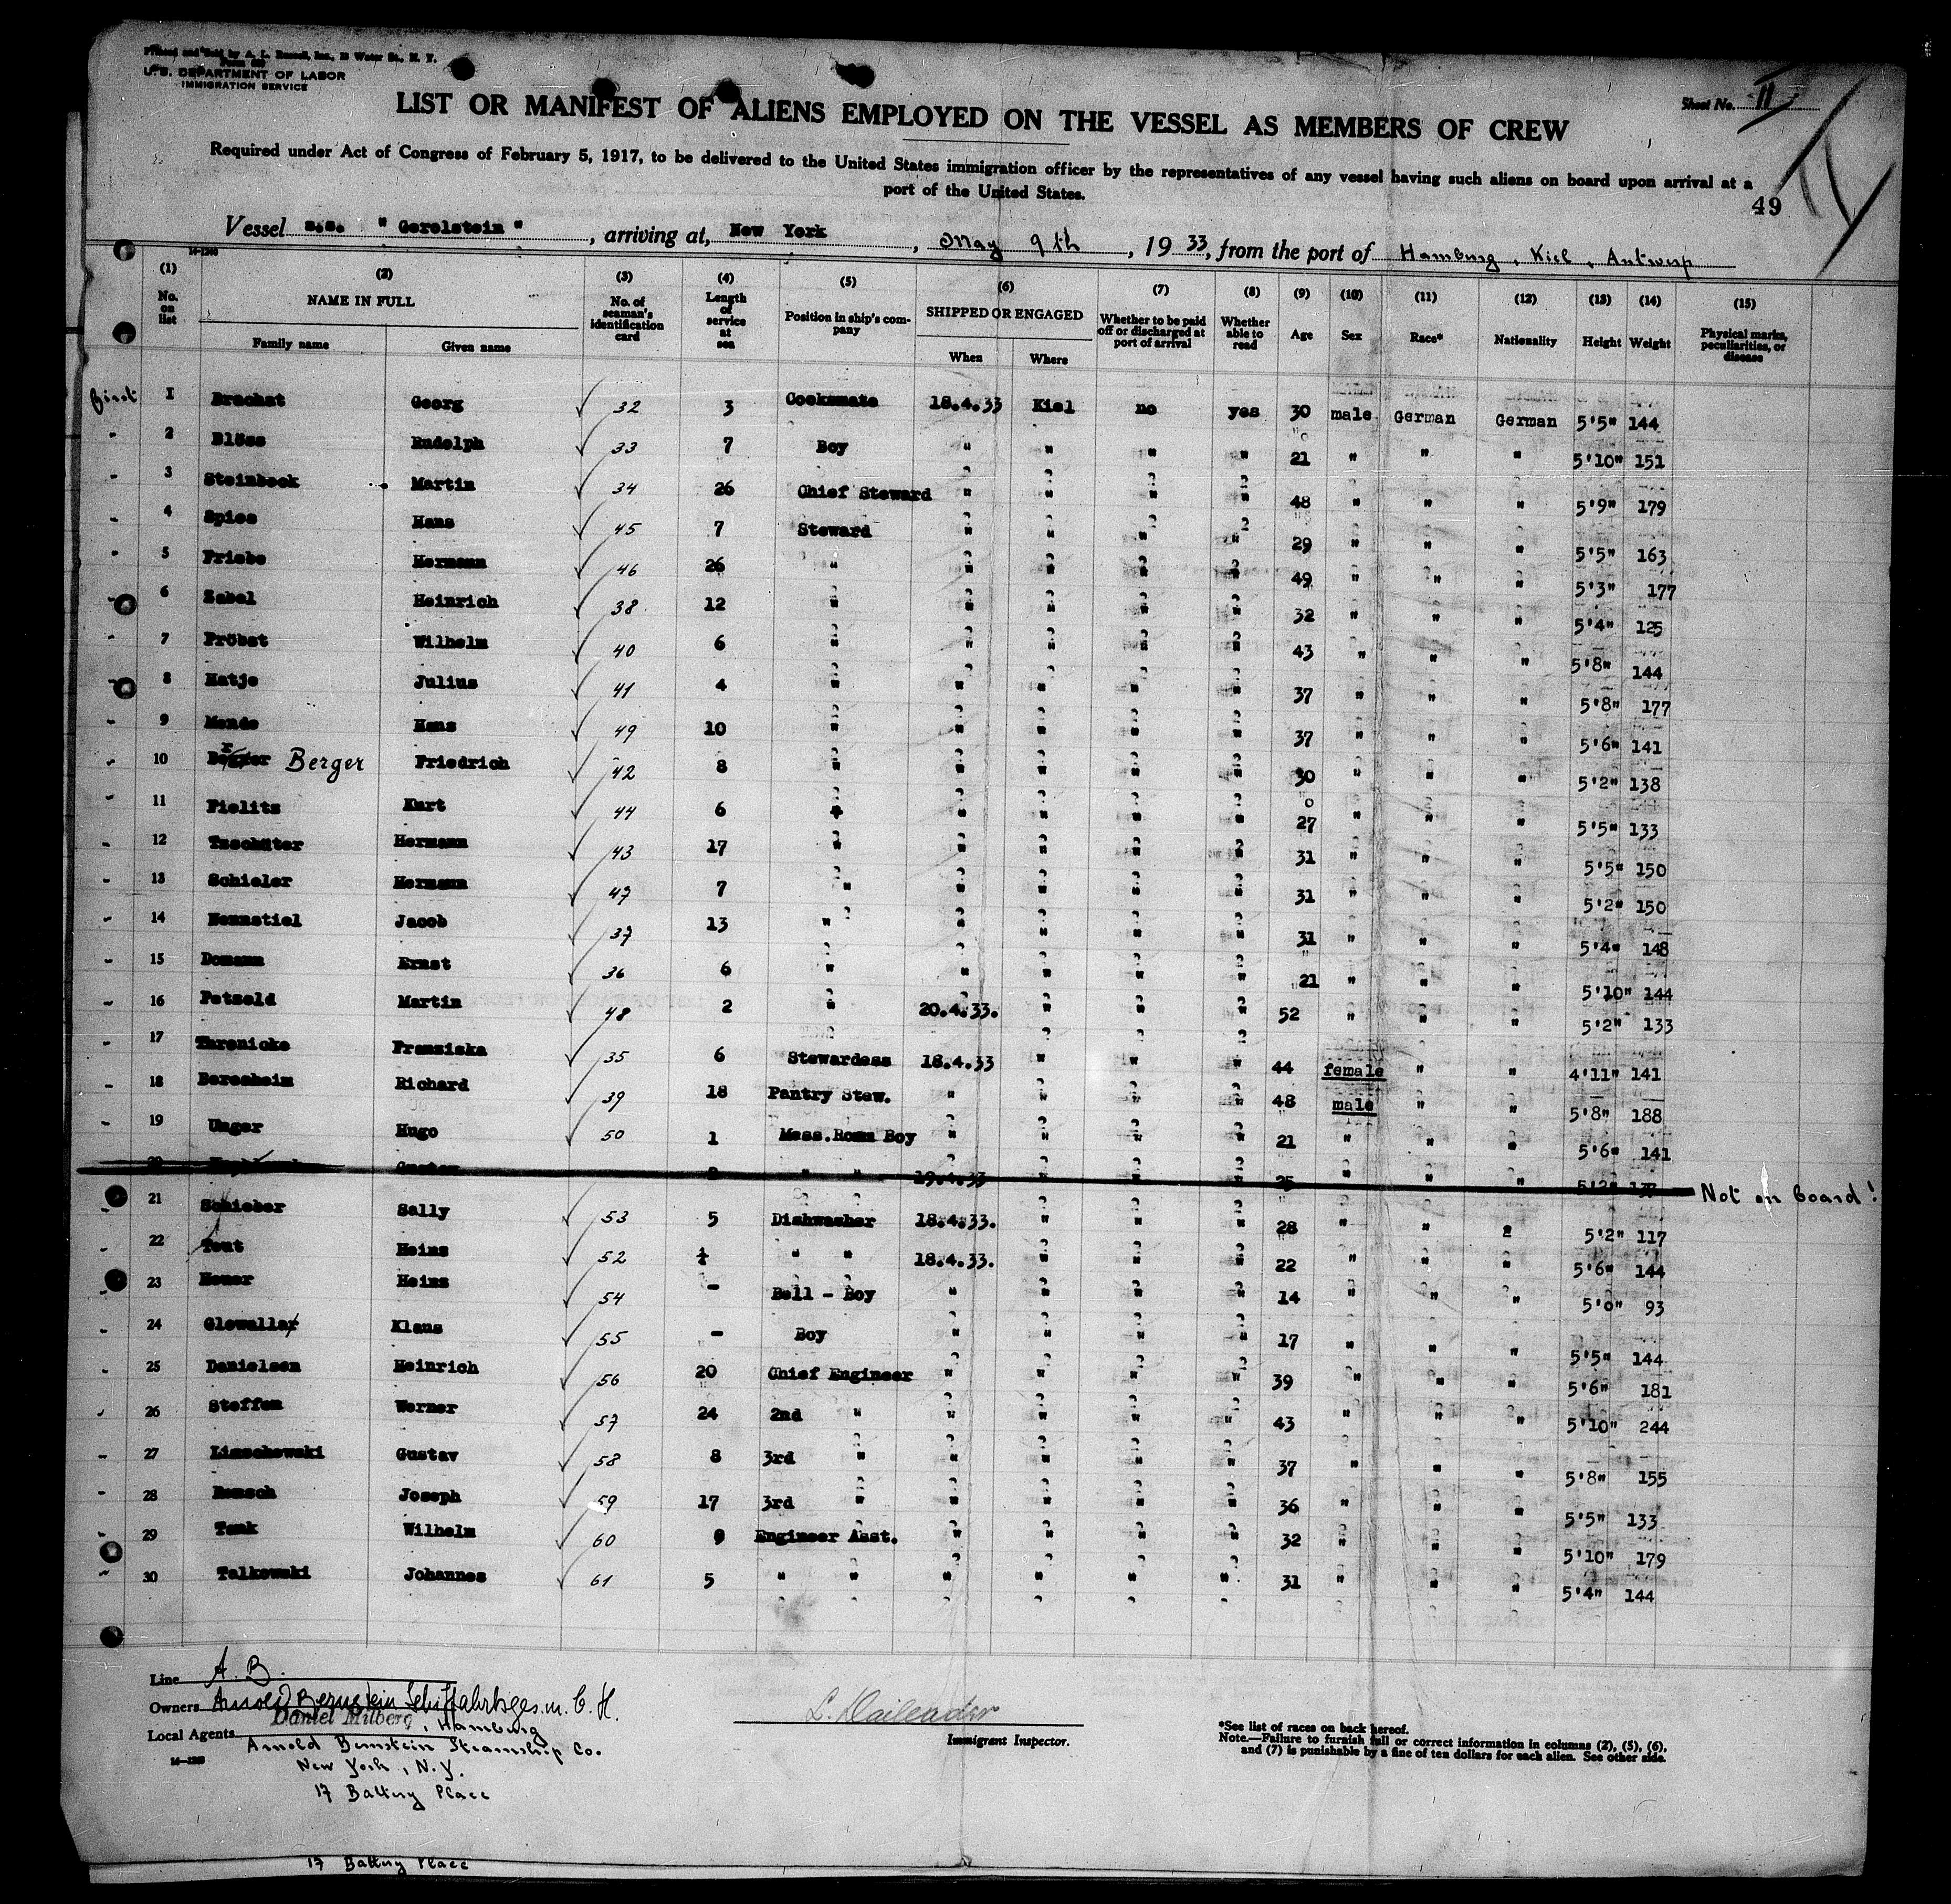 Printed and Sold by A. L. Russell, Inc., 13 Water St., N. Y.
U. S. DEPARTMENT OF LABOR
IMMIGRATION SERVICE
Sheet No. II
LIST OR MANIFEST OF ALIENS EMPLOYED ON THE VESSEL AS MEMBERS OF CREW
Required under Act of Congress of February 5, 1917, to be delivered to the United States immigration officer by the representatives of any vessel having such aliens on board upon arrival at a
port of the United States.
49
Vessel s.s. " Gerolstein ", arriving at, New York, May 9th, 1933, from the port of Hamburg, Kiel, Antwerp
(1) (2) (3) (4) (5) (6) (7) (8) (9) (10) (11) (12) (13) (14) (15)
No. on list NAME IN FULL Family name Given name No. of seaman's identification card Length of service at sea Position in ship's company SHIPPED OR ENGAGED When Where Whether to be paid off or discharged at port of arrival Whether able to read Age Sex Race* Nationality Height Weight Physical marks, peculiarities, or disease
first 1 Brachat Georg √ 32 3 Cooksmate 18.4.33 Kiel no yes 30 male German German 5'5" 144
" 2 Blöss Rudolph √ 33 7 Boy " " " " 21 " " " 5'10" 151
" 3 Steinbeck Martin √ 34 26 Chief Steward " " " " 48 " " " 5'9" 179
" 4 Spies Hans √ 45 7 Steward " " " " 29 " " " 5'5" 163
" 5 Friebe Hermann √ 46 26 " " " " " 49 " " " 5'3" 177
" 6 Zabel Heinrich √ 38 12 " " " " " 32 " " " 5'4" 125
" 7 Pröbst Wilhelm √ 40 6 " " " " " 43 " " " 5'8" 144
" 8 Hatje Julius √ 41 4 " " " " " 37 " " " 5'8" 177
" 9 Mende Hans √ 49 10 " " " " " 37 " " " 5'6" 141
" 10 Berger Friedrich √ 42 8 " " " " " 30 " " " 5'2" 138
" 11 Fielitz Kurt √ 44 6 " " " " " 27 " " " 5'5" 133
" 12 Tzschüter Hermann √ 43 17 " " " " " 31 " " " 5'5" 150
" 13 Schieler Hermann √ 47 7 " " " " " 31 " " " 5'2" 150
" 14 Nennstiel Jacob √ 37 13 " " " " " 31 " " " 5'4" 148
" 15 Domann Ernst √ 36 6 " " " " " 21 " " " 5'10" 144
" 16 Petzold Martin √ 48 2 " 20.4.33. " " " 52 " " " 5'2" 133
" 17 Thronicke Franziska √ 35 6 Stewardess 18.4.33 " " " 44 female " " 4'11" 141
" 18 Beresheim Richard √ 39 18 Pantry Stew. " " " " 48 male " " 5'8" 188
" 19 Unger Hugo √ 50 1 Mess.Room Boy " " " " 21 " " " 5'6" 141
20 Gustav " " 19.4.33 " " " 25 " " " 5'2" 137 Not on board!
21 Schieber Sally √ 53 5 Dishwasher 18.4.33. " " " 28 " " " 5'2" 117
" 22 Tout Heinz √ 52 " " 18.4.33. " " " 22 " " " 5'6" 144
" 23 Heuer Heinz √ 54 - Bell - Boy " " " " 14 " " " 5'0" 93
" 24 Glewallar Klaus √ 55 - Boy " " " " 17 " " " 5'5" 144
" 25 Danielsen Heinrich √ 56 20 Chief Engineer " " " " 39 " " " 5'6" 181
" 26 Steffen Werner √ 57 24 2nd " " " " " 43 " " " 5'10" 244
" 27 Limschewski Gustav √ 58 8 3rd " " " " " 37 " " " 5'8" 155
" 28 Remsch Joseph √ 59 17 3rd " " " " " 36 " " " 5'5" 133
" 29 Tank Wilhelm √ 60 9 Engineer Asst. " " " " 32 " " " 5'10" 179
" 30 Talkowski Johannes √ 61 5 " " " " " " 31 " " " 5'4" 144
Line A. B.
Owners Arnold Bernstein Schiffahrtsges. m. b. H.
Daniel Milberg, Hamburg
Local Agents Arnold Bernstein Steamship Co.
New York, N.Y.
17 Battery Place
Immigrant Inspector.
*See list of races on back hereof.
Note.—Failure to furnish full or correct information in columns (2), (5), (6),
and (7) is punishable by a fine of ten dollars for each alien. See other side.
17 Battery Place